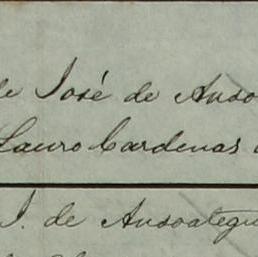 de José de Anso
Lauro Cardenas
J. de Ansoategu